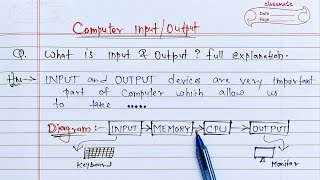 classmate
Date
Page
Computer Input/Output
Q. What is input & Output? full explanation.
Ans→ INPUT and OUTPUT devices are very important
part of Computer which allow us
to take .....
Diagram:- INPUT → MEMORY → CPU → OUTPUT
Keyboard
Monitor